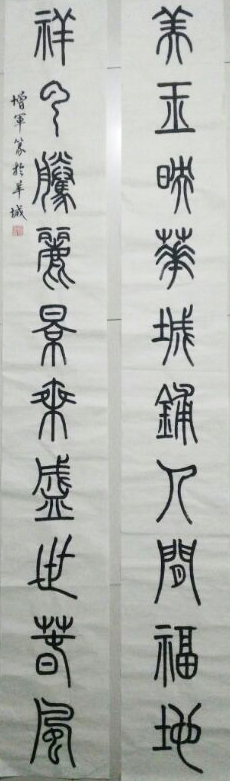 美玉映華城鋪人間福地
祥雲騰麗景來盛世春風
增軍篆於羊城